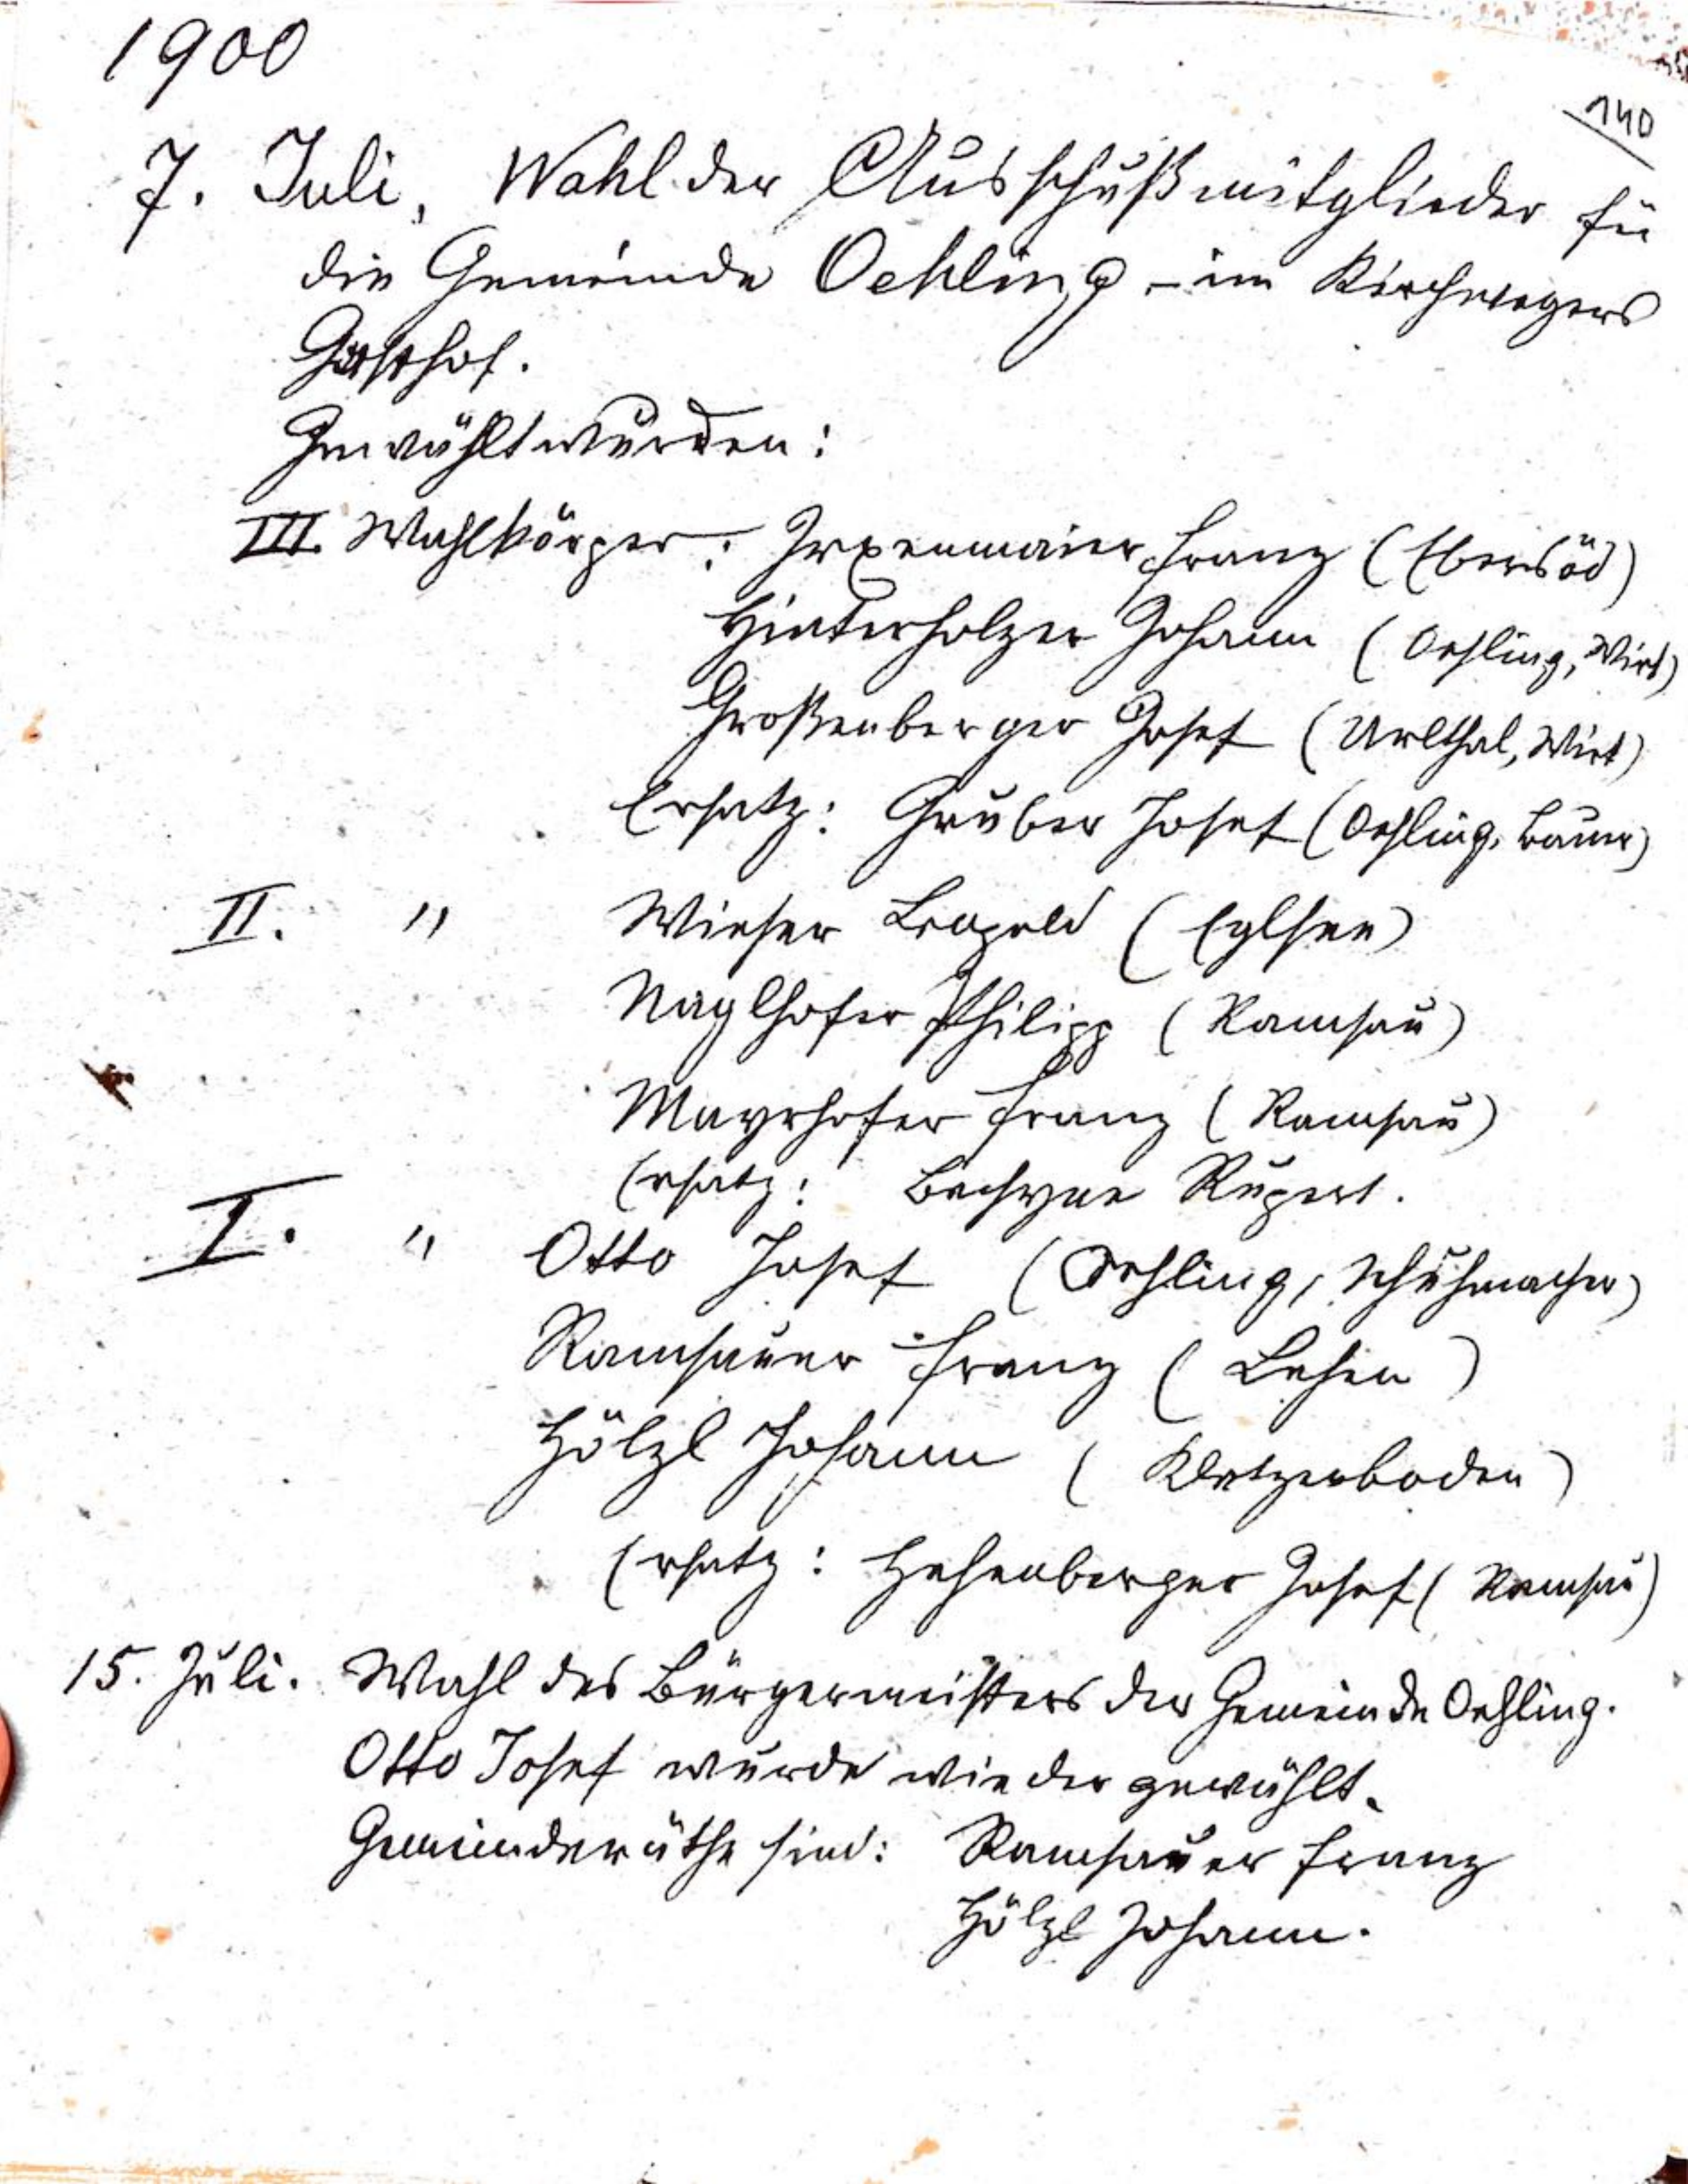 1900
140
7. Juli, Wahl der Ausschußmitglieder für
die Gemeinde Oehling – im Kirchwegers
Gasthof.
Gewählt wurden:
III. Wahlkörper: Irxenmaier Franz (Ebersöd)
Hinterholzer Johann (Oehling, Wirt)
Großenberger Josef (Urlthal, Wirt)
Ersatz: Gruber Josef (Oehling, Bauer)
II. " Wieser Leopold (Eglsee)
Naglhofer Philipp (Ramsau)
Mayrhofer Franz (Ramsau)
Ersatz: Rupert.
I. " Otto Josef (Oehling, Schuhmacher)
Ramsauer Franz (Lehen)
Hölzl Johann (Kletzenboden)
Ersatz: Hehenberger Josef (Ramsau)
15. Juli. Wahl des Bürgermeisters der Gemeinde Oehling.
Otto Josef wurde wieder gewählt.
Gemeinderäthe sind: Ramsauer Franz
Hölzl Johann.